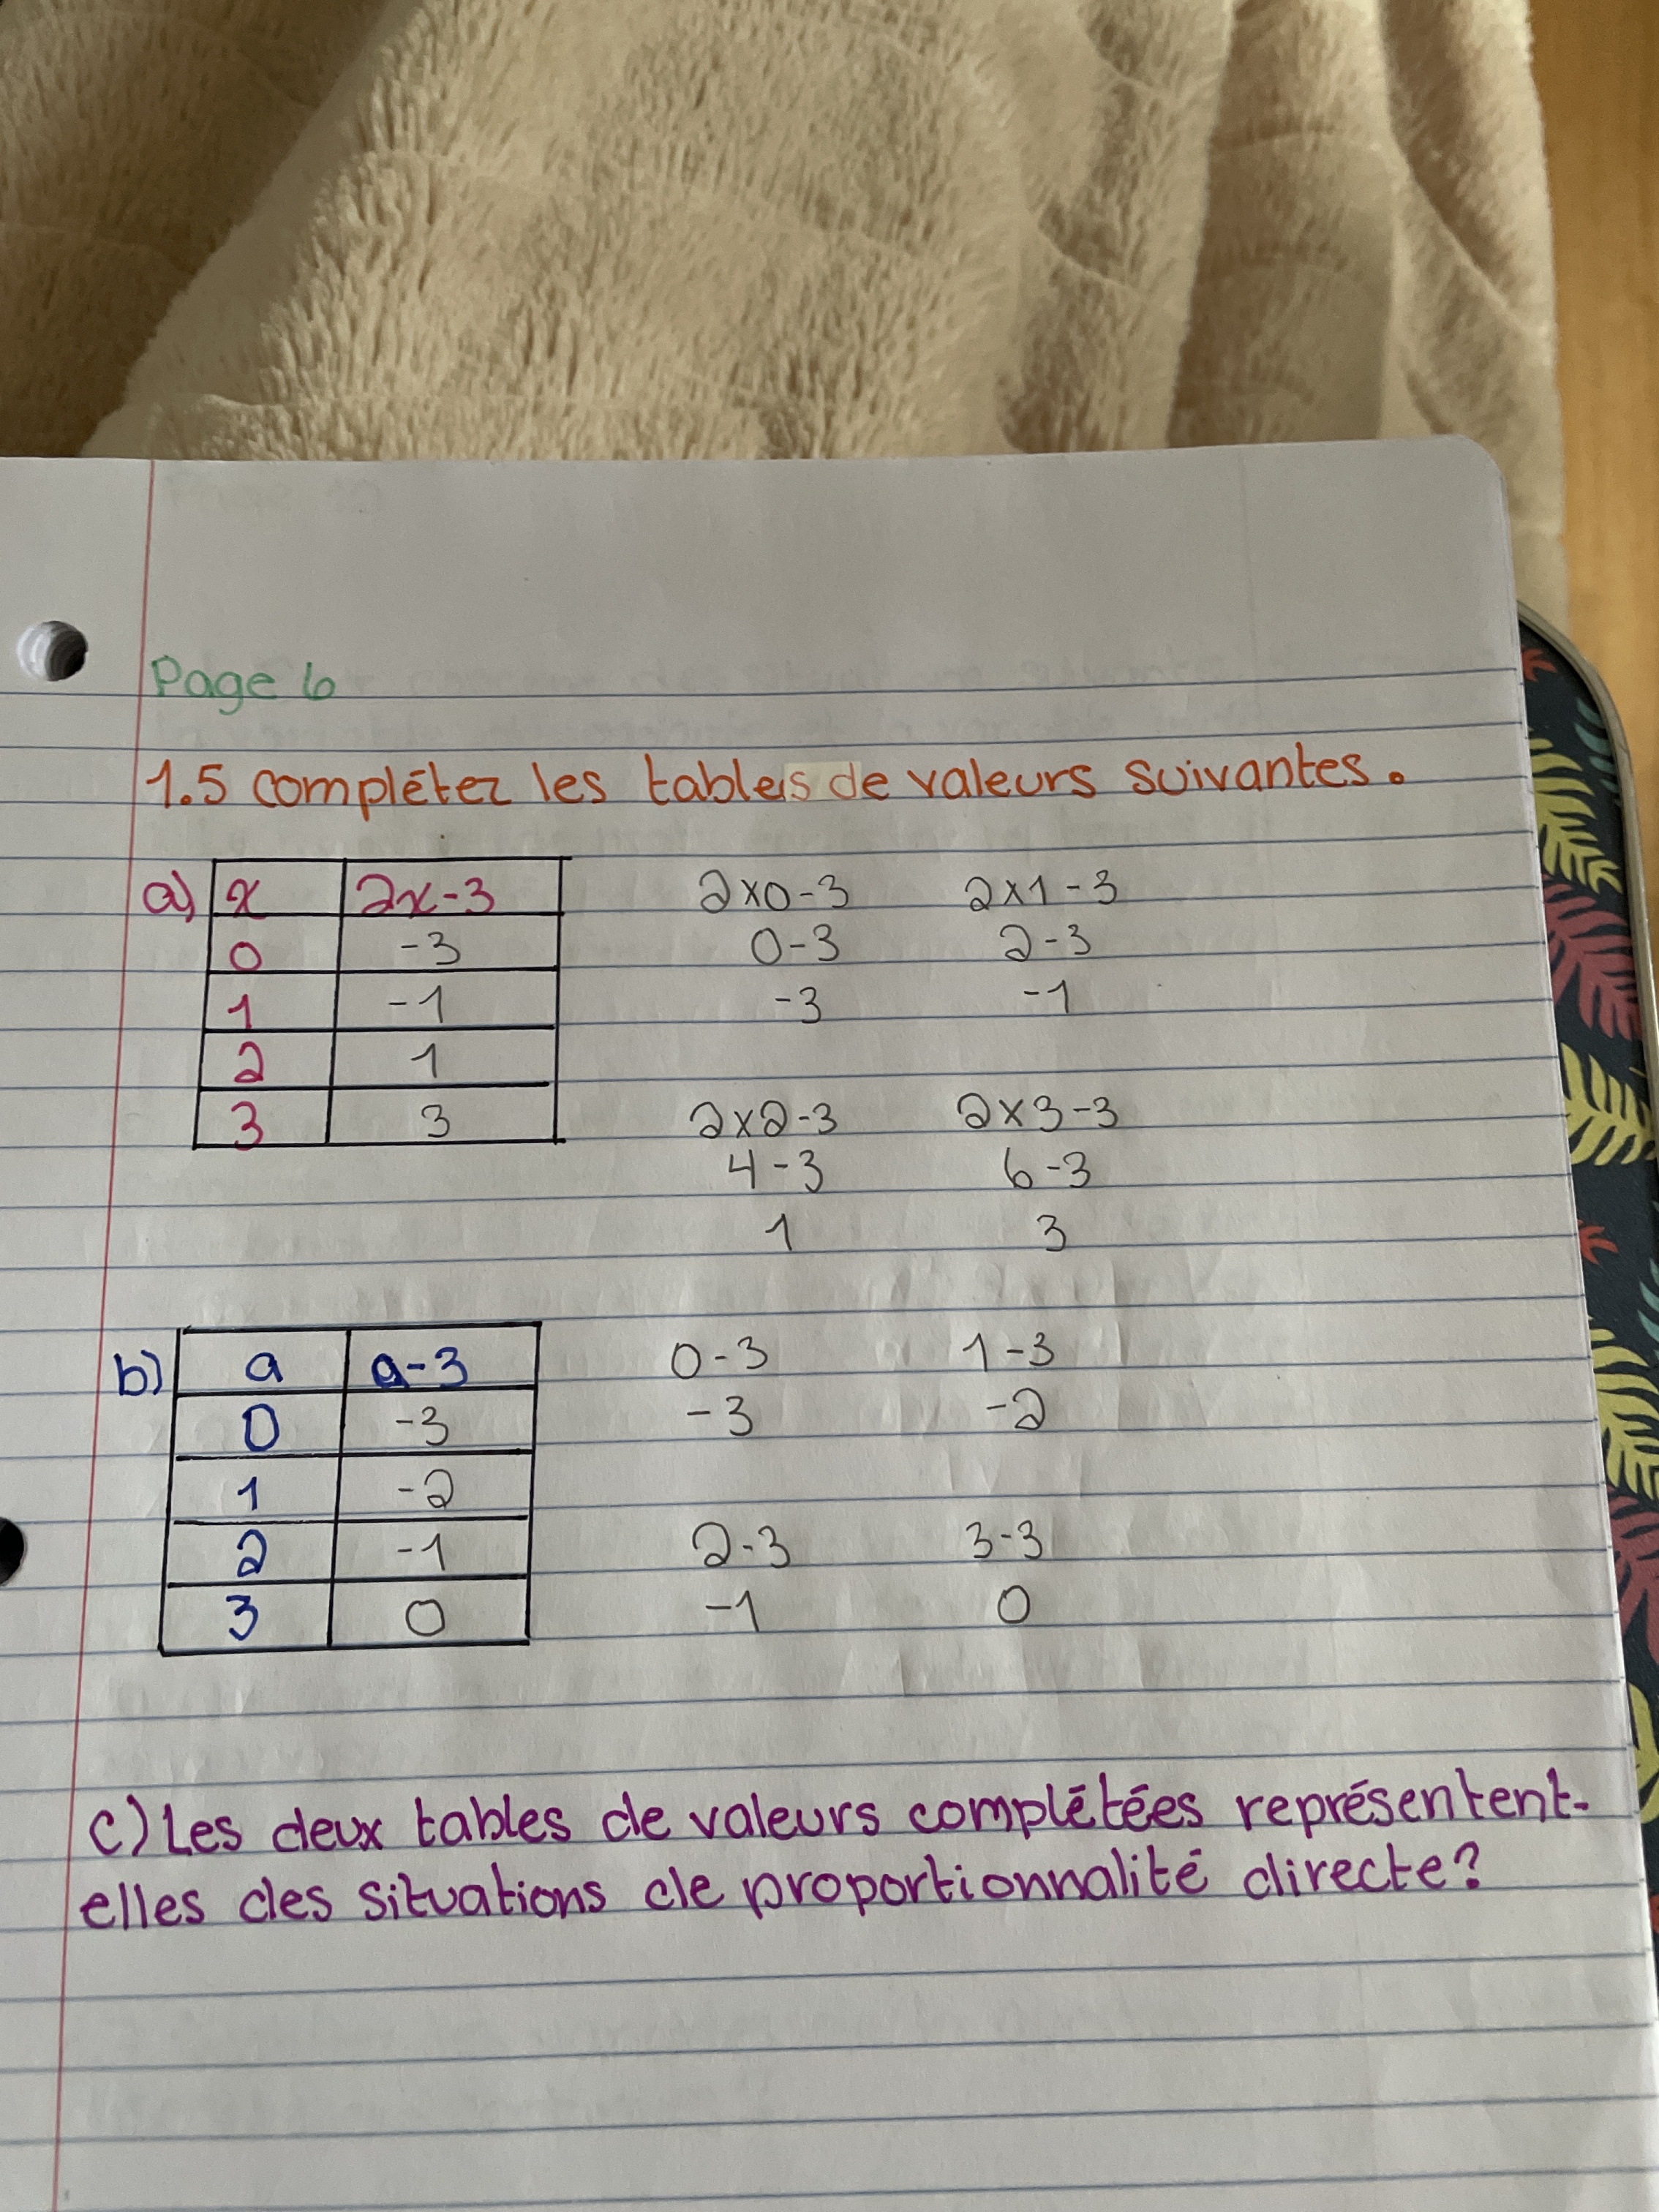 Page 6
1.5 compléter les tables de valeurs suivantes.
a) x 2x-3 2x0-3 2x1-3
0 -3 0-3 2-3
1 -1 -3 -1
2 1
3 3 2x2-3 2x3-3
4-3 6-3
1 3
b) a a-3 0-3 1-3
0 -3 -3 -2
1 -2
2 -1 2-3 3-3
3 0 -1 0
c) Les deux tables de valeurs complétées représentent-
elles des situations de proportionnalité directe?